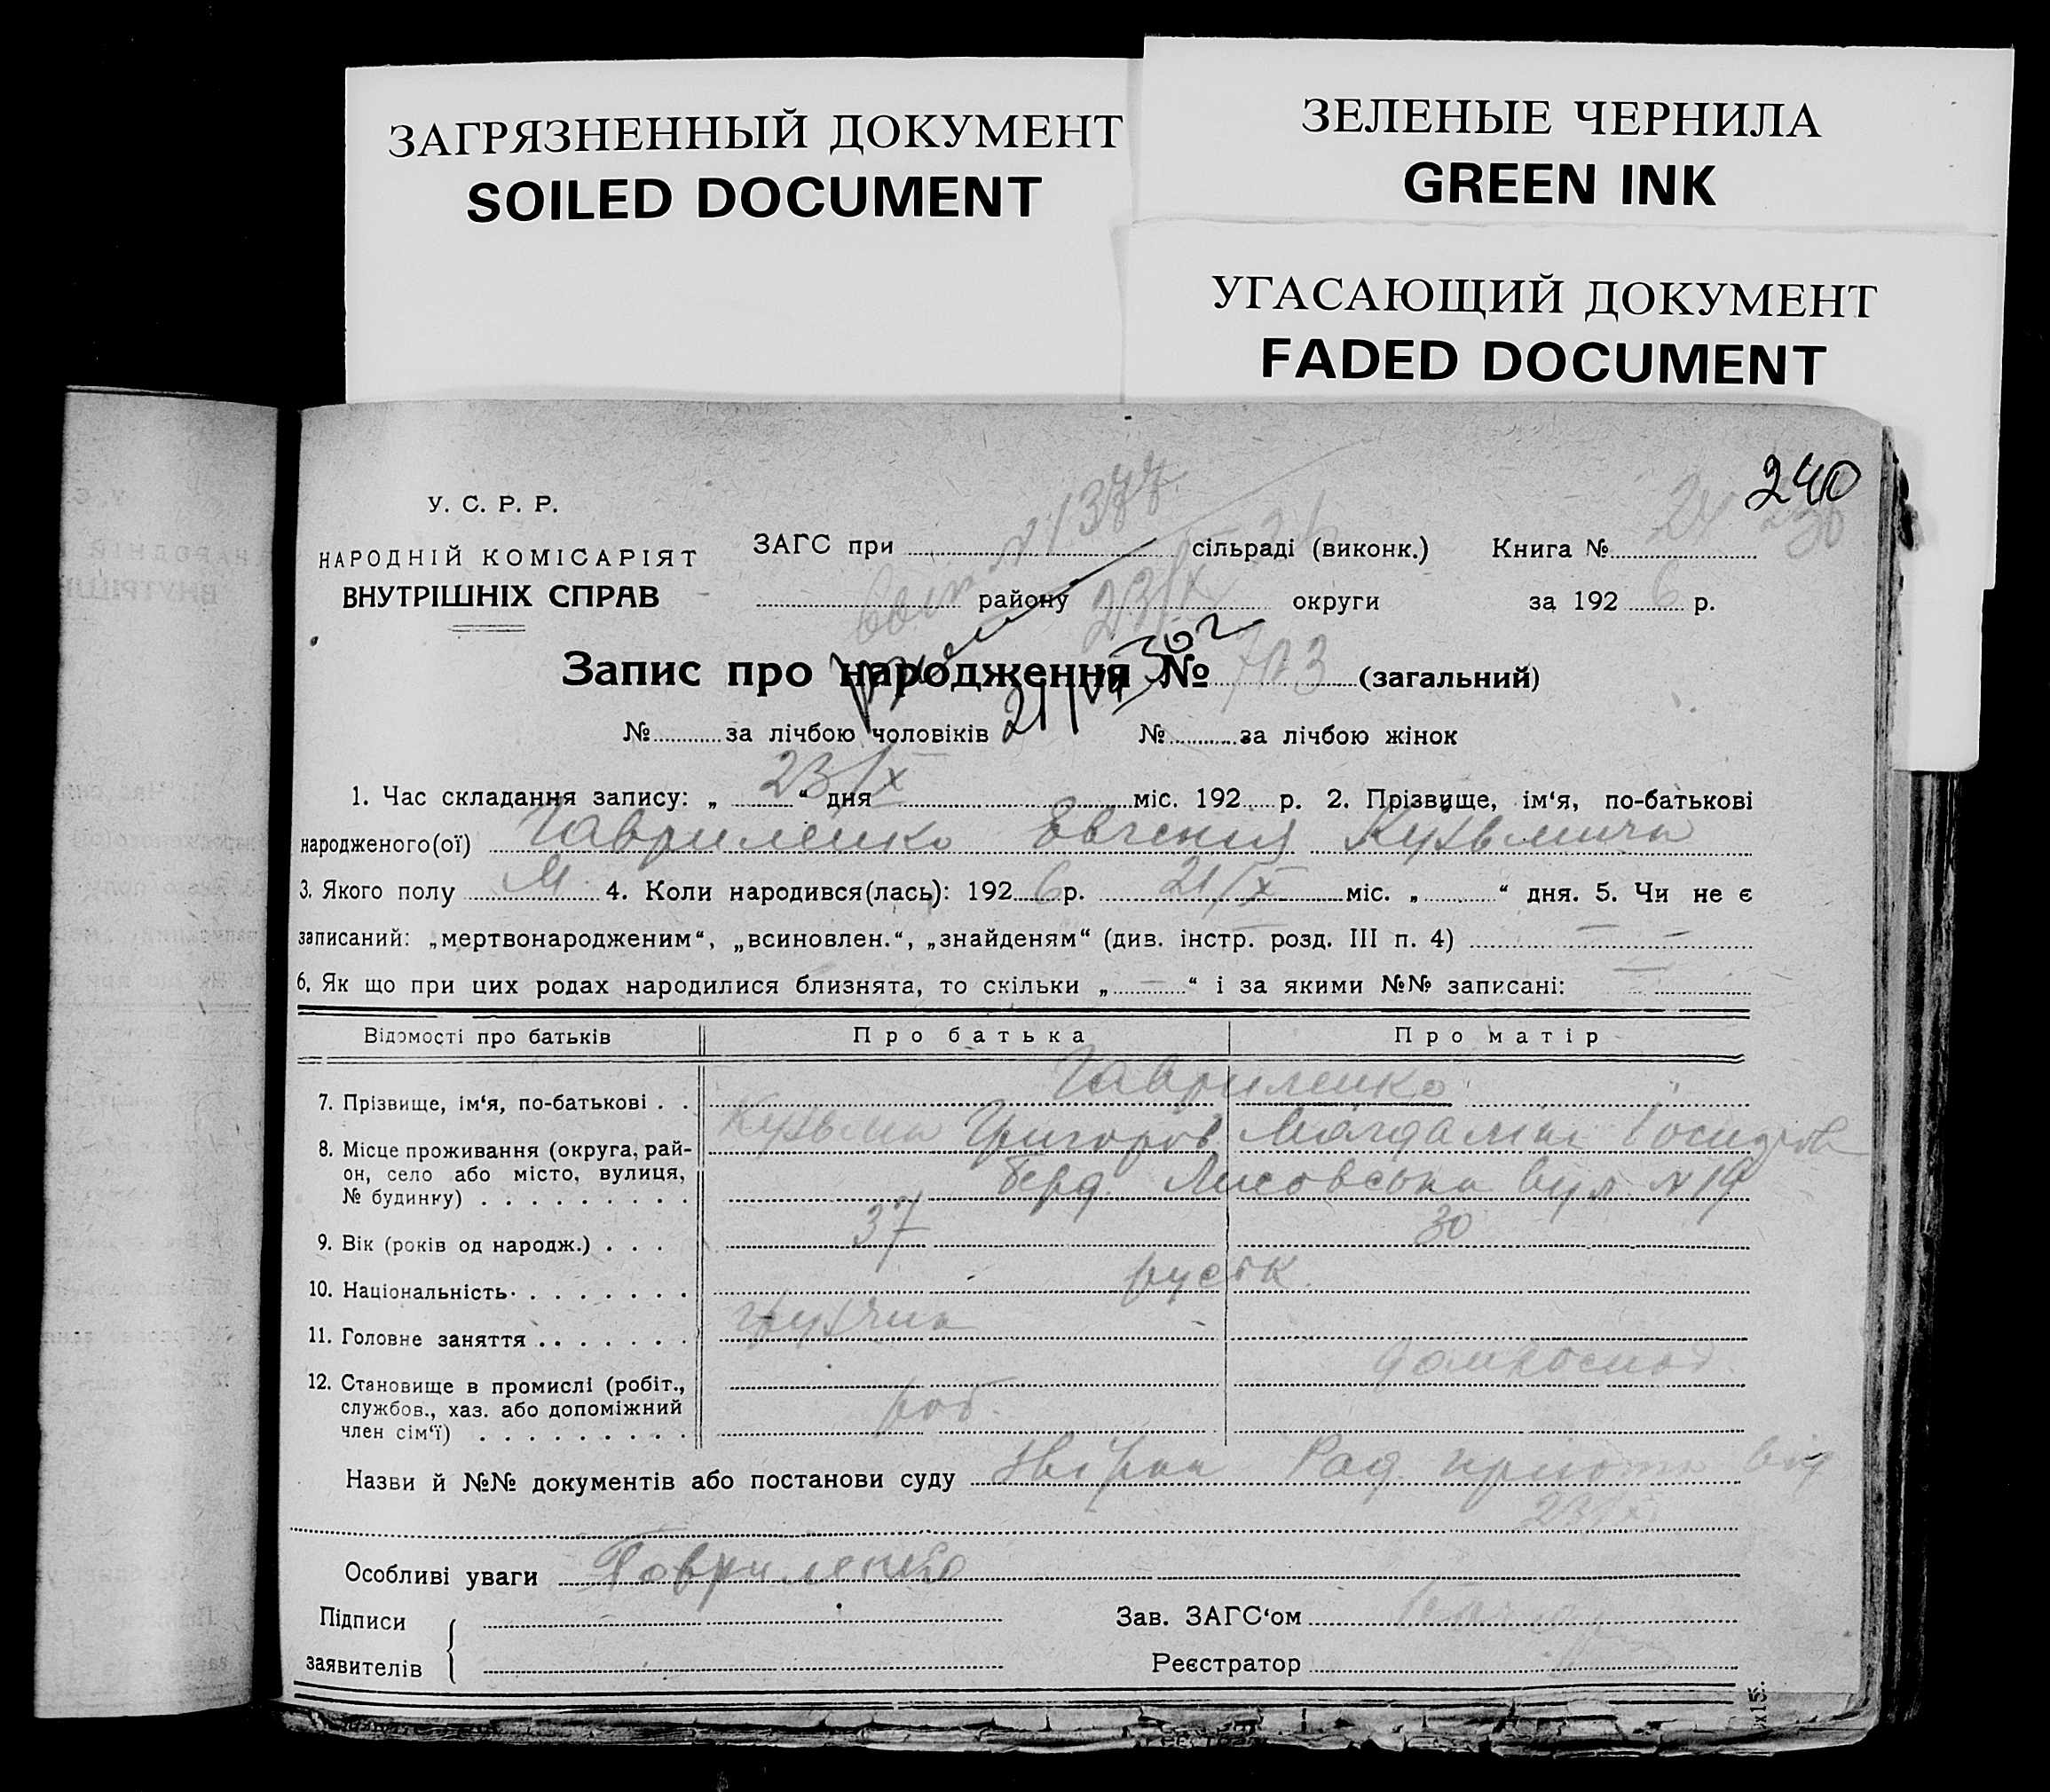 ЗАГРЯЗНЕННЫЙ ДОКУМЕНТ
SOILED DOCUMENT
ЗЕЛЕНЫЕ ЧЕРНИЛА
GREEN INK
УГАСАЮЩИЙ ДОКУМЕНТ
FADED DOCUMENT
240
У. С. Р. Р.
НАРОДНІЙ КОМІСАРІЯТ
ВНУТРІШНІХ СПРАВ
№ 1377
ЗАГС при сільраді (виконк.) Книга № 24
району 23/X округи за 192 6 р.
Запис про народження № 703 (загальний)
№ за лічбою чоловіків 21/VI 30 г № за лічбою жінок
1. Час складання запису: „ 23/X “ дня міс. 192 р. 2. Прізвище, ім‘я, по-батькові
народженого(ої) Гавриленко Евгений Кузьмич
3. Якого полу М 4. Коли народився(лась): 192 6 р. 21/X міс. „ “ дня. 5. Чи не є
записаний: „мертвонародженим“, „всиновлен.“, „знайденям“ (див. інстр. розд. III п. 4) — —
6. Як що при цих родах народилися близнята, то скільки „ — “ і за якими №№ записані: —
Відомості про батьків Про батька Про матір
Гавриленко
7. Прізвище, ім‘я, по-батькові . .
Кузьма Григоров Магдалина
8. Місце проживання (округа, рай-
он, село або місто, вулиця,
№ будинку) . . . . . . . . . Берд. Лисовська вул. № 19
9. Вік (років од народж.) . . . 37 30
10. Національність . . . . . . . . русск.
11. Головне заняття . . . . . . . грузчик домгоспод.
12. Становище в промислі (робіт.,
службов., хаз. або допоміжний
член сім‘ї) . . . . . . . . . роб.
Назви й №№ документів або постанови суду Рад. від
23/X
Особливі уваги Гавриленко
Підписи
заявителів
Зав. ЗАГС‘ом
Реєстратор